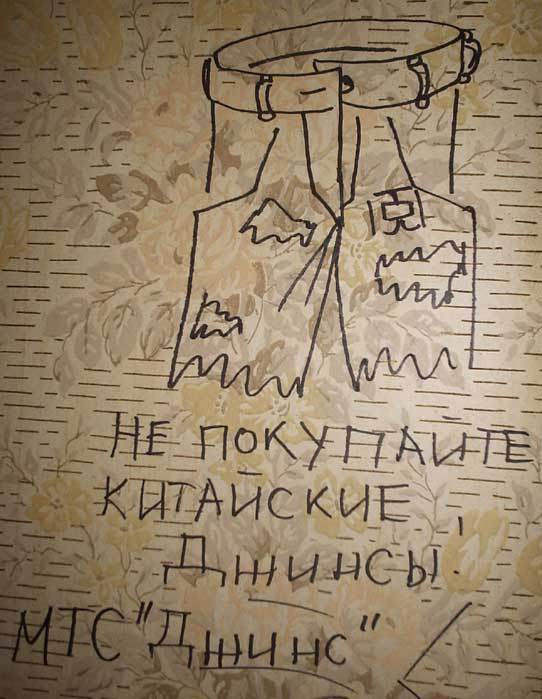 НЕ ПОКУПАЙТЕ
КИТАЙСКИЕ
ДЖИНСЫ!
МТС "ДЖИНС"